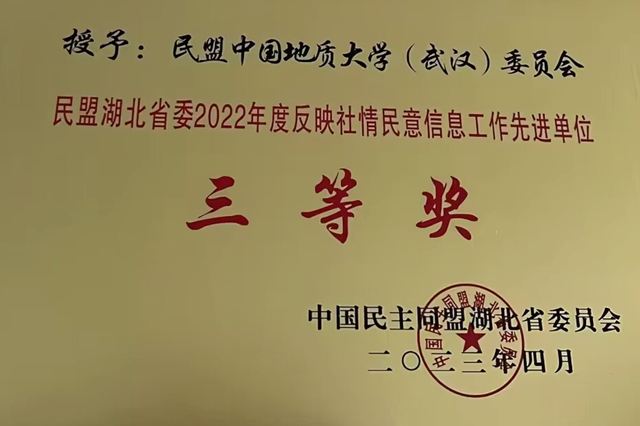 授予：民盟中国地质大学（武汉）委员会
民盟湖北省委2022年度反映社情民意信息工作先进单位
三等奖
中国民主同盟湖北省委员会
二〇二三年四月
中国民主同盟湖北省委员会